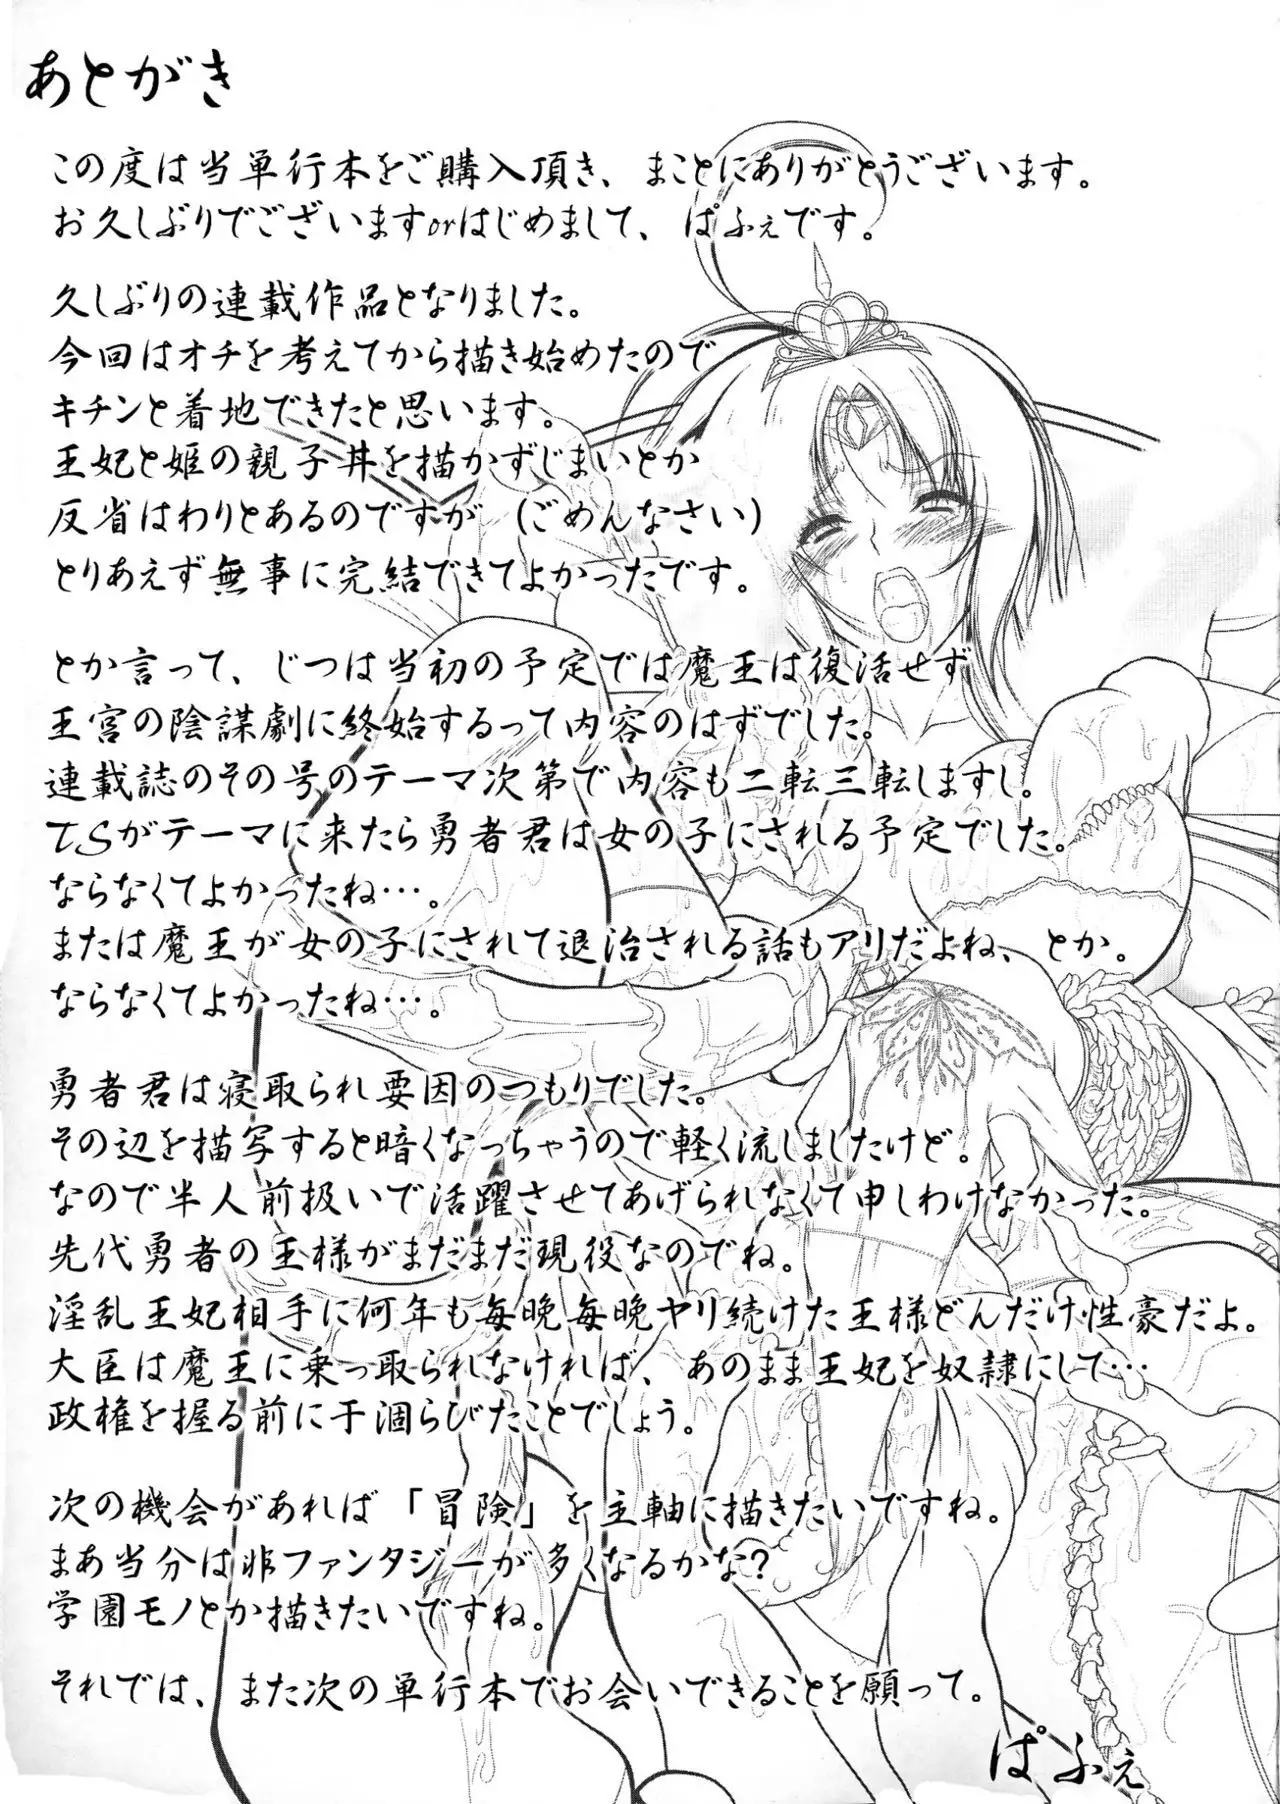 あとがき
この度は当単行本をご購入頂き、まことにありがとうございます。
お久しぶりでございますorはじめまして、ぱふぇです。
久しぶりの連載作品となりました。
今回はオチを考えてから描き始めたので
キチンと着地できたと思います。
王妃と姫の親子丼を描かずじまいとか
反省はわりとあるのですが（ごめんなさい）
とりあえず無事に完結できてよかったです。
とか言って、じつは当初の予定では魔王は復活せず
王宮の陰謀劇に終始するって内容のはずでした。
連載誌のその号のテーマ次第で内容も二転三転しますし。
TSがテーマに来たら勇者君は女の子にされる予定でした。
ならなくてよかったね…。
または魔王が女の子にされて退治される話もアリだよね、とか。
ならなくてよかったね…。
勇者君は寝取られ要因のつもりでした。
その辺を描写すると暗くなっちゃうので軽く流しましたけど。
なので半人前扱いで活躍させてあげられなくて申しわけなかった。
先代勇者の王様がまだまだ現役なのでね。
淫乱王妃相手に何年も毎晩毎晩ヤリ続けた王様どんだけ性豪だよ。
大臣は魔王に乗っ取られなければ、あのまま王妃を奴隷にして…
政権を握る前に干涸らびたことでしょう。
次の機会があれば「冒険」を主軸に描きたいですね。
まあ当分は非ファンタジーが多くなるかな？
学園モノとか描きたいですね。
それでは、また次の単行本でお会いできることを願って。
ぱふぇ